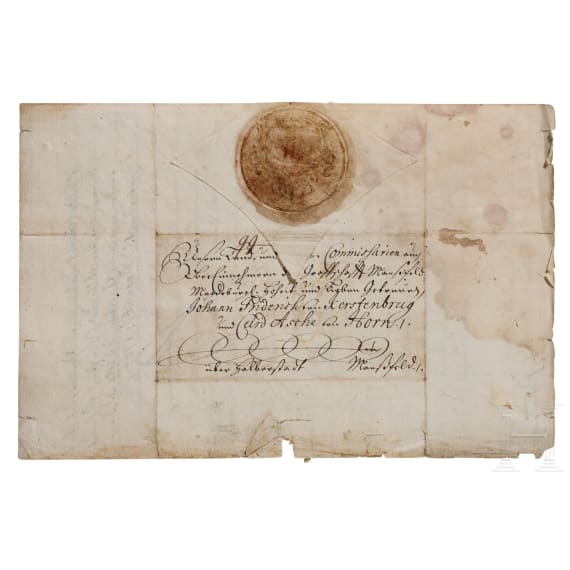 Unsern Land und Commissarien auch
Obereinnehmern der Graffschafft Manßfeld
Magdeburg. Hoheit und Lieben Getreuen,
Johann Friderich von Kerstenbrug
und Curd Asche von Horn.
über Halberstadt Manßfeld.